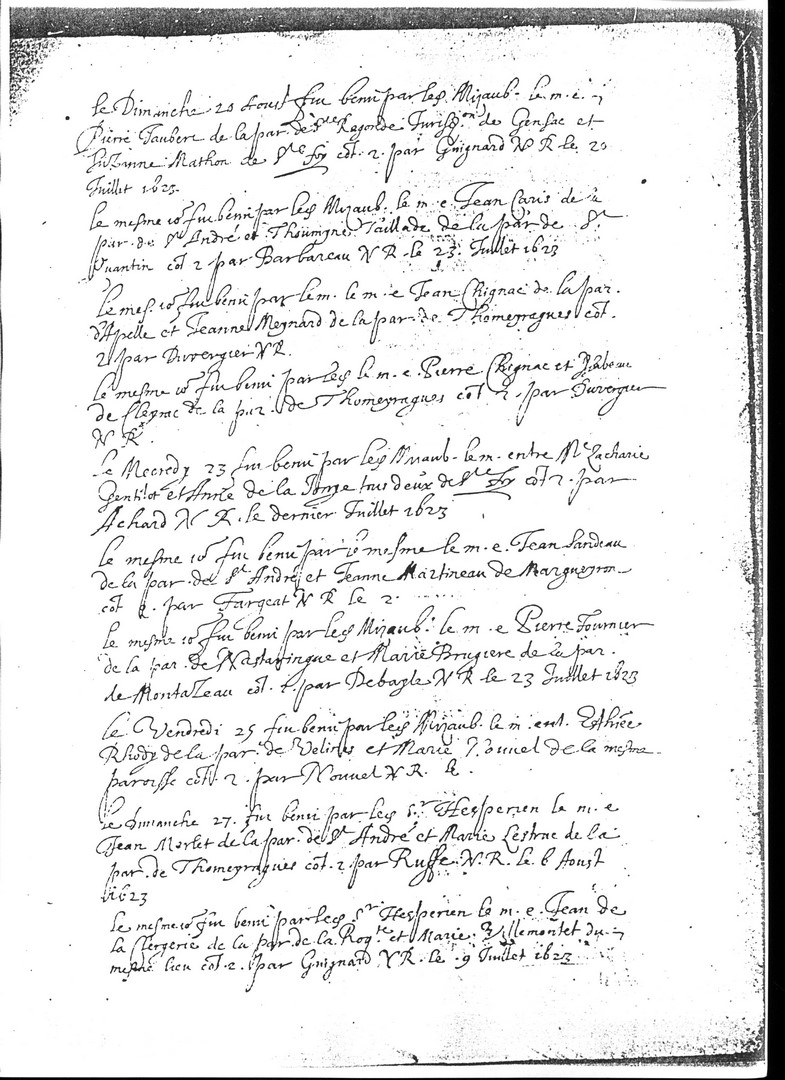 le Dimanche 20 Aoust fut beni par led. Mizaub. le m. e.
Pierre Jaubert de la par. de Ste Ragonde Jurisd.on de Gensac et
Suzanne Mathon de Ste foy cōt. 2. par Guignard N R le 20
Juillet 1623.
le mesme io.r fut beni par led Mizaub. le m. e Jean Caris de la
par. de St André et Thoumine Taillade de la par de St
Quantin cōt 2 par Barbareau N R. le 23. Juillet 1623
le mes. io.r fut beni par le m. le m. e Jean Chignac de la par.
d'Apelle et Jeanne Meynard de la par. de Thomeyragues cōt.
2 par Duvergier N R.
le mesme io.r fut beni par led le m. e. Pierre Chignac et
de de la par. de Thomeyragues cōt 2. par Duvergier
N R.
le Mecredy 23 fut beni par led Mizaub. le m. entre Me Zacharie
Gentilot et Anne de la tous deux de Ste foy cōt 2. par
Achard N R. le dernier Juillet 1623
le mesme io.r fut beni par le mesme le m. e. Jean Landeau
de la par. de St André et Jeanne Martineau de Margueyron
cōt 2. par Fargeat N R le 2.
le mesme io.r fut beni par led Mizaub. le m. e Pierre Fournier
de la par. de Nastaringue et Marie Brugiere de la par.
de Montazeau cōt. 2. par Debagle N R le 23 Juillet 1623
le Vendredi 25 fut beni par led Mizaub. le m. ent.
de la par. de Velines et Marie de la mesme
paroisse cōt. 2. par Nouvel N R. le.
le dimanche 27. fut beni par led. Sr Hesperien le m. e
Jean Morlet de la par. de St André et Marie Lestrac de la
par. de Thomeyragues cōt. 2 par Ruffe N. R. le 6 Aoust
1623
le mesme io.r fut beni par led Sr Hesperien le m. e. Jean de
la Clergerie de la par. de la Roq.te et Marie Villemontet du
mesme lieu cōt. 2. par Guignard N R. le 9 Juillet 1623